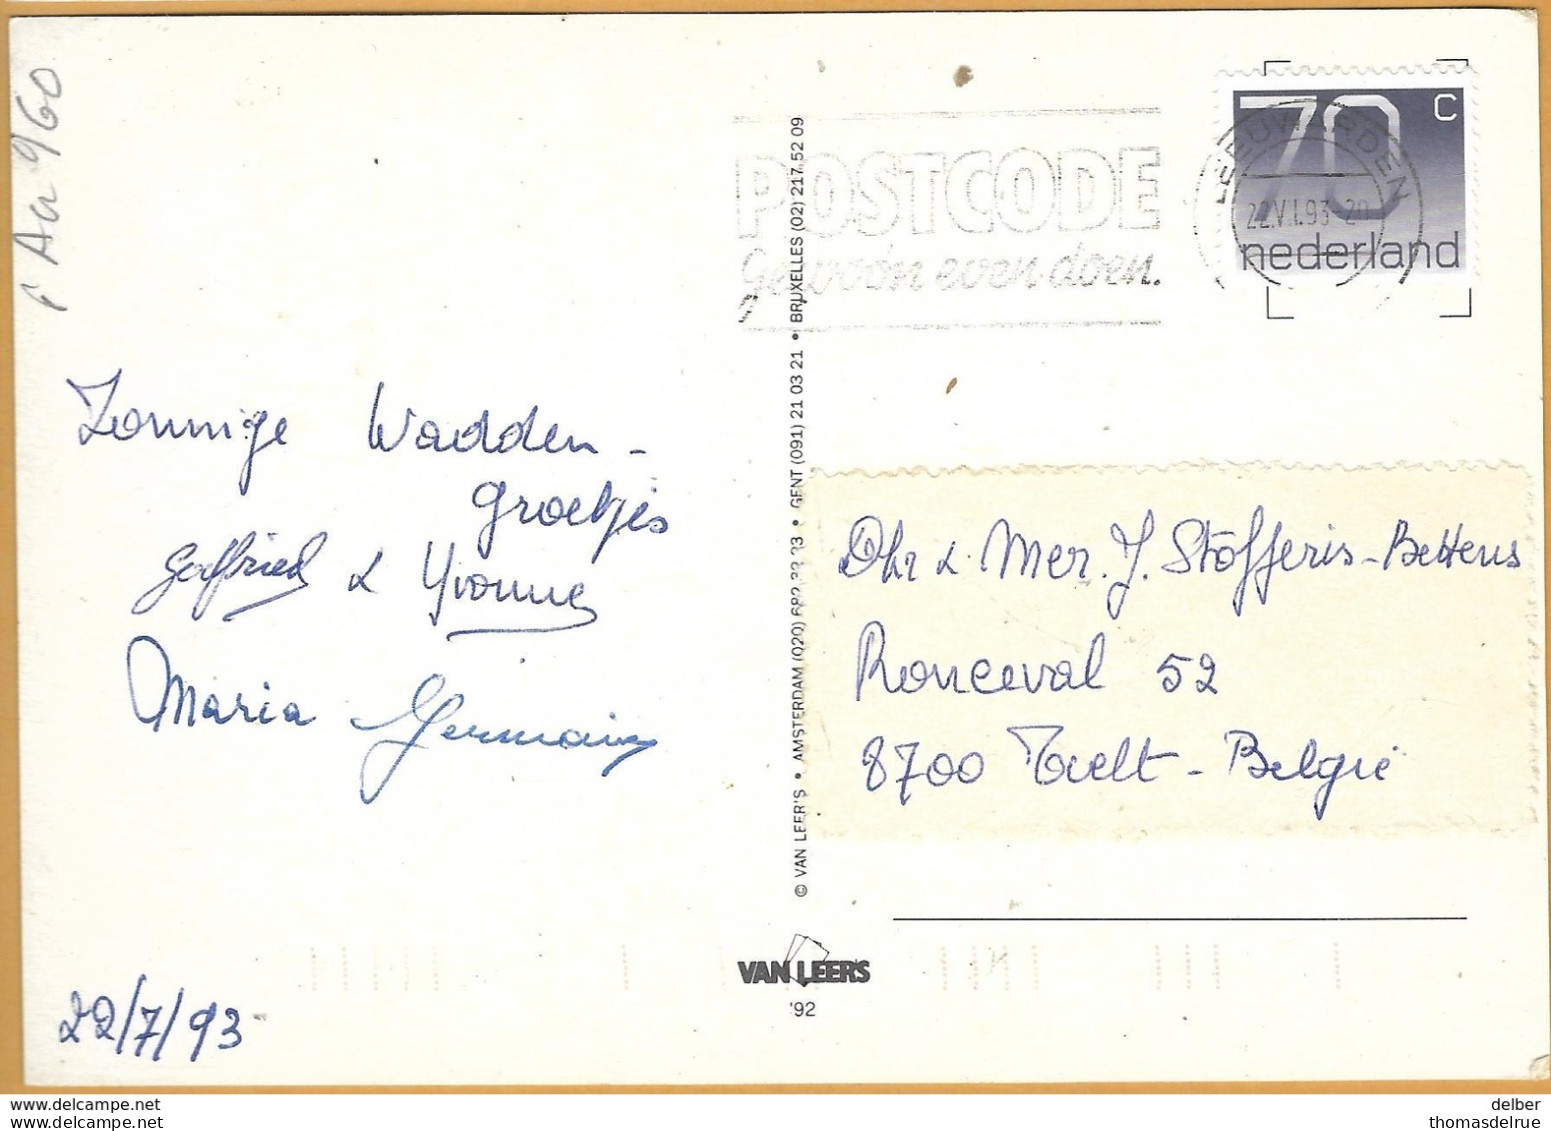 P Au 960
Zonnige Wadden-
groetjes
Godfried & Yvonne
Maria Germain
22/7/93
© VAN LEER'S • AMSTERDAM (020) 682 22 93 • GENT (091) 21 03 21 • BRUXELLES (02) 217 52 09
VAN LEER'S
'92
POSTCODE
gewoon even doen.
LEEUWARDEN
22.VII.93-20
70 C
nederland
Dhr & Mer. J. Stofferis-Bettens
Ronceval 52
8700 Tielt - België
delcampe.net
delber
thomasdelrue